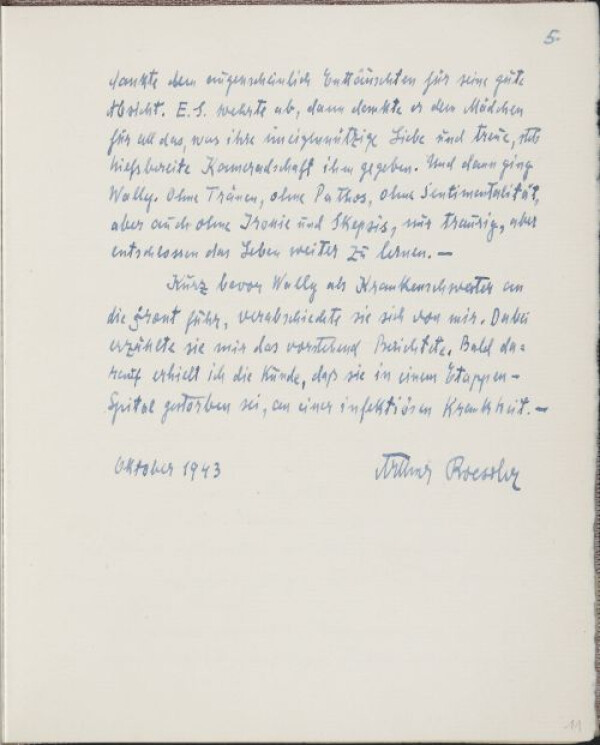 5.
dankte dem augenscheinlich Enttäuschten für seine gute
Absicht. E. S. wehrte ab, dann dankte er dem Mädchen
für all das, was ihre uneigennützige Liebe und treue,
hilfsbereite Kameradschaft ihm gegeben. Und dann ging
Wally. Ohne Tränen, ohne Pathos, ohne Sentimentalität,
aber auch ohne Ironie und Skepsis, nur traurig, aber
entschlossen das Leben weiter zu lernen. —
Kurz bevor Wally als Krankenschwester an
die Front fuhr, verabschiedete sie sich von mir. Dabei
erzählte sie mir das vorstehend Berichtete. Bald da=
rauf erhielt ich die Kunde, daß sie in einem Etappen-
Spital gestorben sei, an einer infektiösen Krankheit. —
Oktober 1943
Arthur Roessler
11